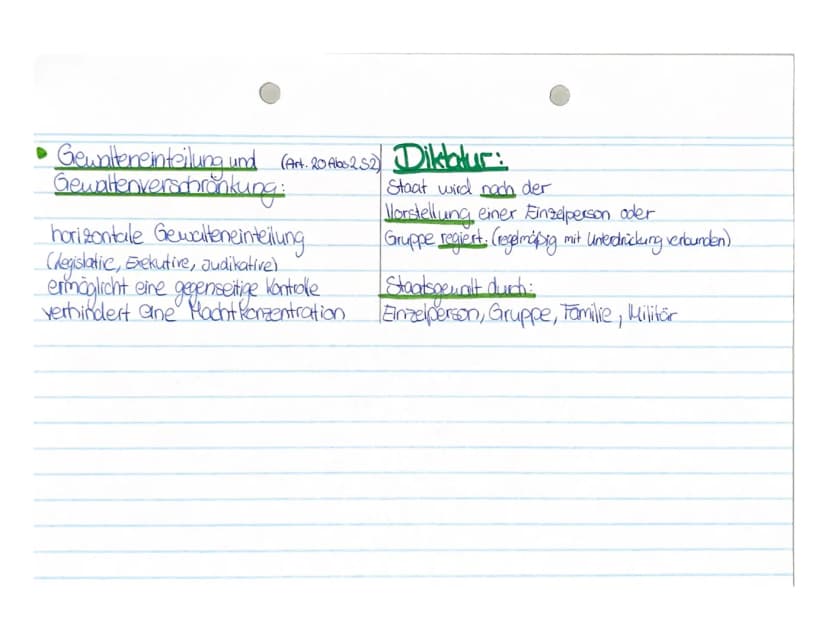 Gewalteneinteilung und (Art. 20 Abs 2 S2)
Gewaltenverschränkung:
horizontale Gewalteneinteilung
(Legislative, Exekutive, Judikative)
ermöglicht eine gegenseitige Kontrolle
verhindert eine Machtkonzentration
Diktatur:
Staat wird nach der
Vorstellung einer Einzelperson oder
Gruppe regiert. (regelmäßig mit Unterdrückung verbunden)
Staatsgewalt durch:
Einzelperson, Gruppe, Familie, Militär